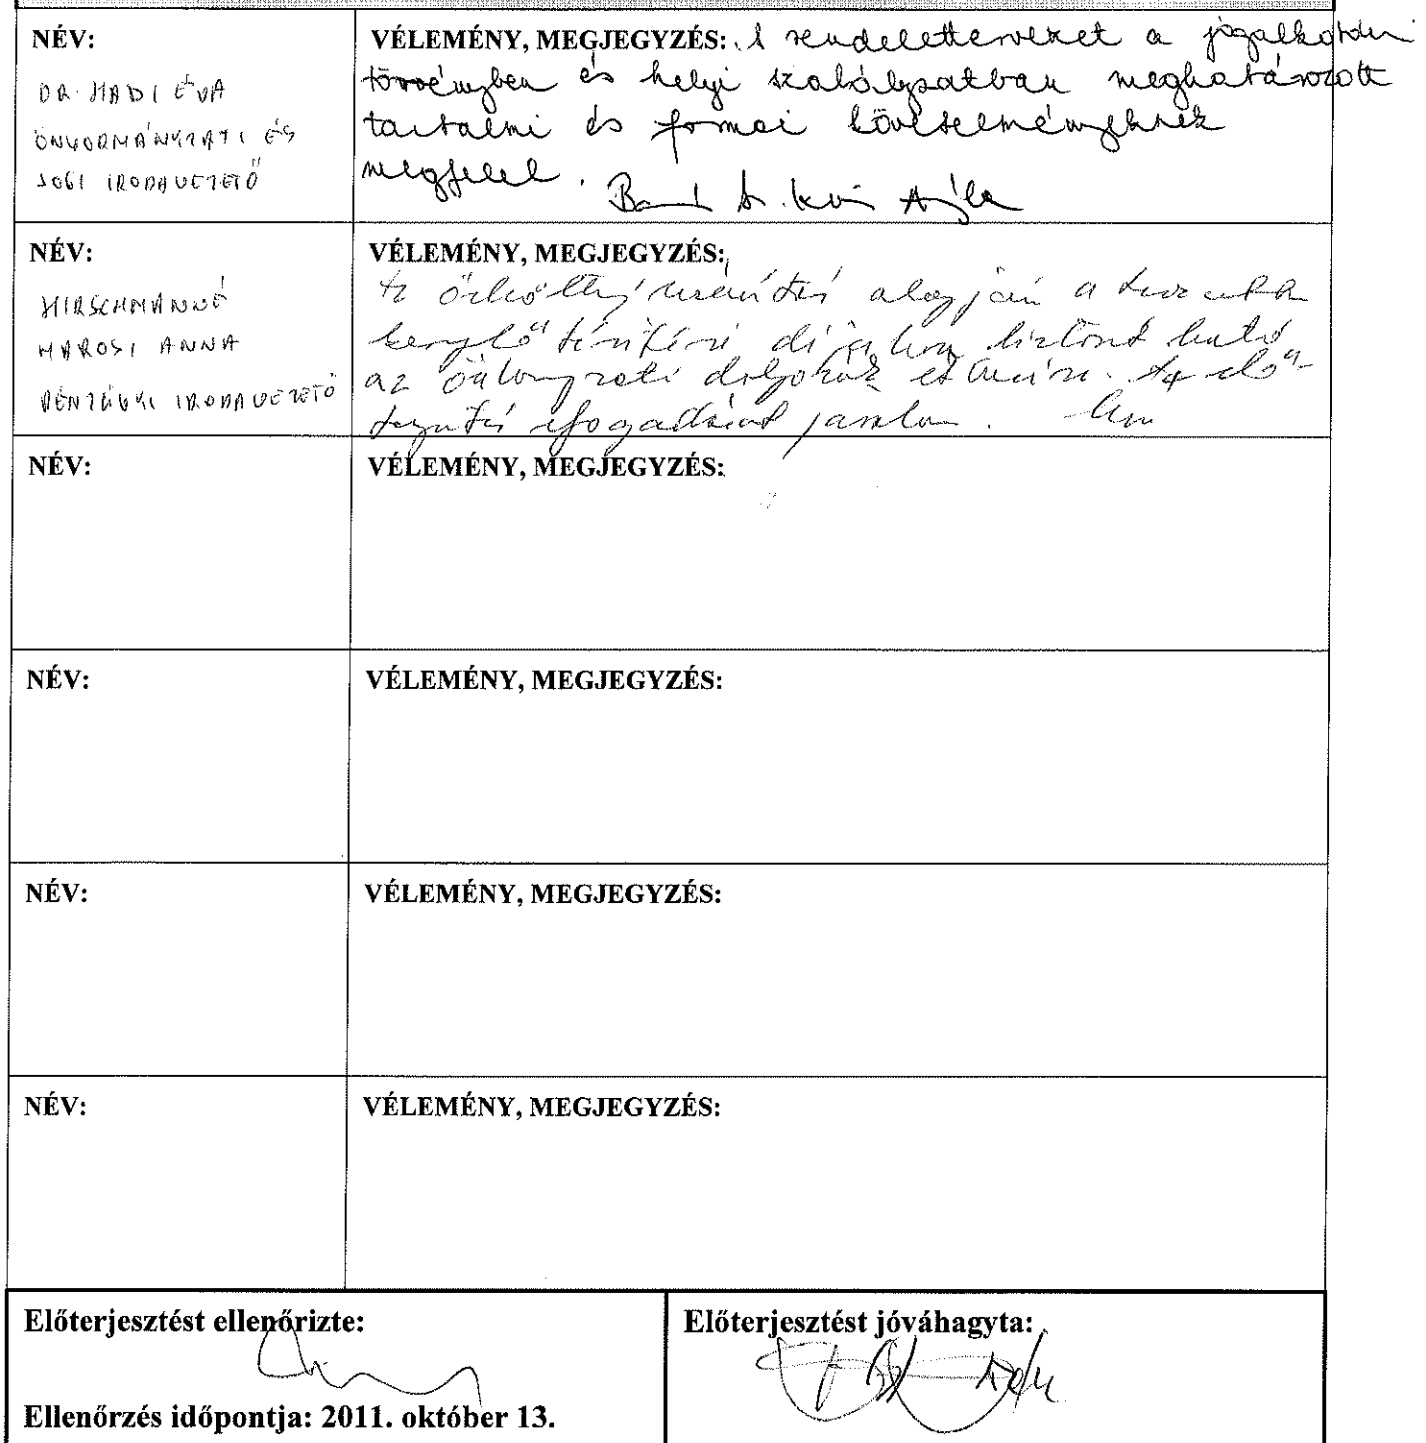 NÉV:
DR. HADI ÉVA
ÖNKORMÁNYZATI ÉS
JOGI IRODAVEZETŐ
VÉLEMÉNY, MEGJEGYZÉS: A rendelettervezet a jogalkotási
törvényben és helyi szabályzatban meghatározott
tartalmi és formai követelményeknek
megfelel.
NÉV:
HIRSCHMANNÉ
MAROSI ANNA
PÉNZÜGYI IRODAVEZETŐ
VÉLEMÉNY, MEGJEGYZÉS:
Az önköltségszámítás alapján a
térítési díj
az
elfogadását javaslom.
NÉV:
VÉLEMÉNY, MEGJEGYZÉS:
NÉV:
VÉLEMÉNY, MEGJEGYZÉS:
NÉV:
VÉLEMÉNY, MEGJEGYZÉS:
NÉV:
VÉLEMÉNY, MEGJEGYZÉS:
Előterjesztést ellenőrizte:
Ellenőrzés időpontja: 2011. október 13.
Előterjesztést jóváhagyta: